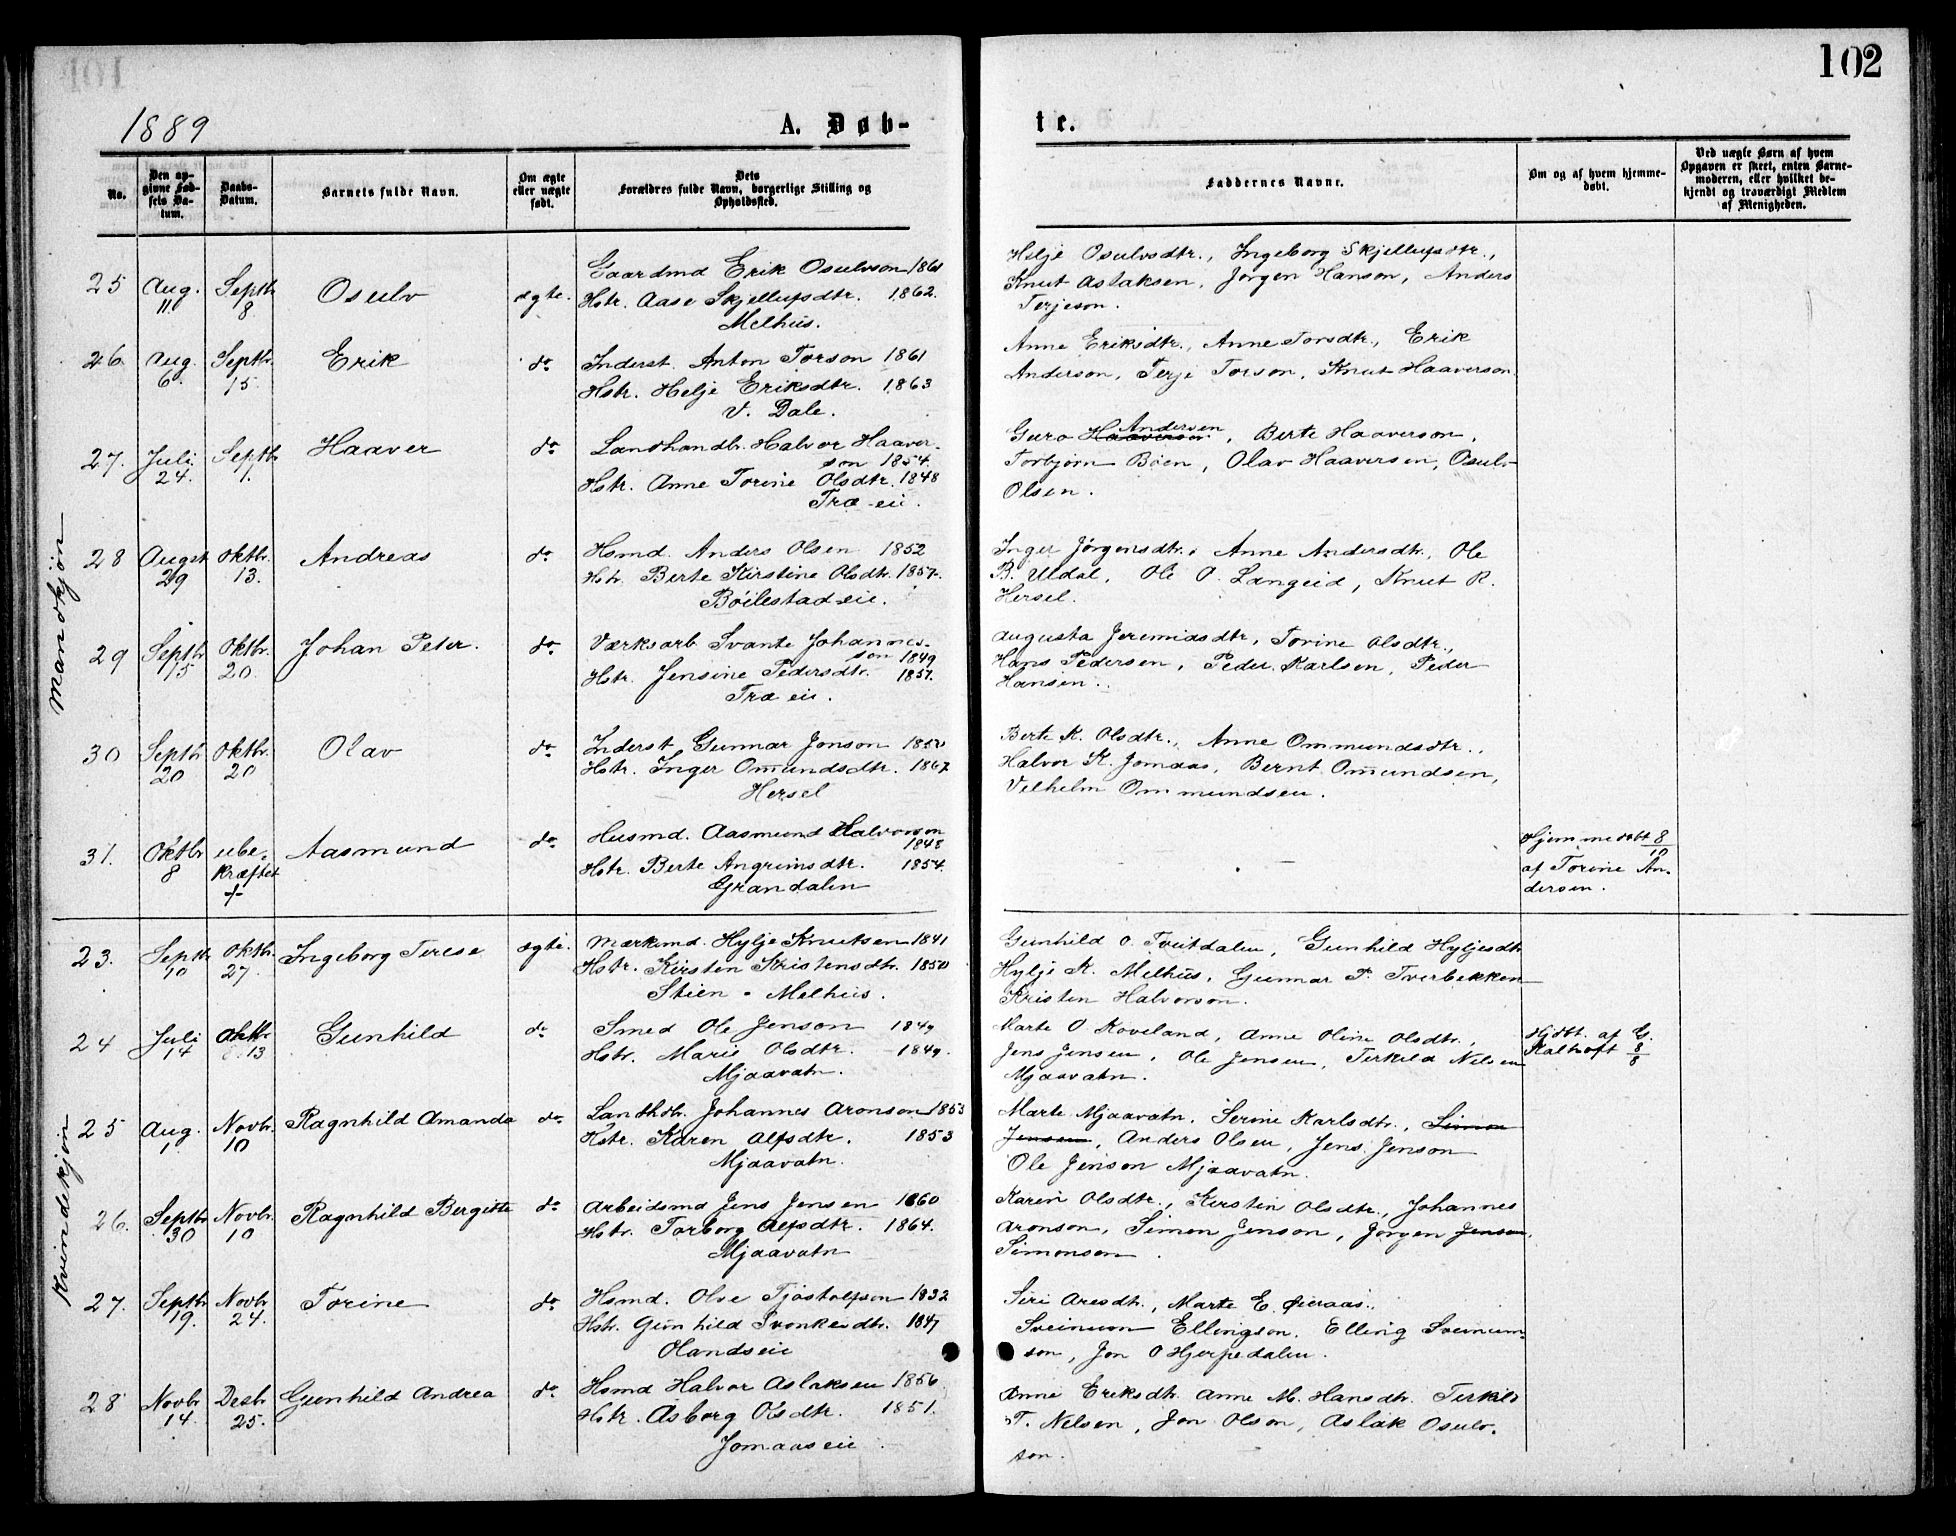 102
1889
A. Døb-
te.
No.
Den op-
givne Fød-
sels Da-
tum.
Daabs-
Datum.
Barnets fulde Navn.
Om ægte
eller uægte
født.
Dets
Forældres fulde Navn, borgerlige Stilling og
Opholdssted.
Faddernes Navne.
Om og af hvem hjemme-
døbt.
Ved uægte Børn af hvem
Opgaven er skeet, enten Barne-
moderen, eller hvilket be-
kjendt og troværdigt Medlem
af Menigheden.
Mandkjøn
25 Aug. 11. Septbr 8 Osulv ægte.
Gaardmd Erik Osulvson 1861
Hstr. Aase Skjellufsdtr. 1862.
Melhus.
Helje Osulvsdtr., Ingeborg Skjellufsdtr.,
Knut Aslaksen, Jørgen Hanson, Anders
Terjeson.
26. Aug. 6. Septbr. 15. Erik do
Inderst. Anton Torson 1861
Hstr. Helje Eriksdtr. 1863
V. Dale.
Anne Eriksdtr., Anne Torsdtr., Erik
Anderson, Terje Torson, Knut Haaverson.
27. Juli 24. Septbr 1. Haaver do
Landhandlr. Halvor Haaver-
son 1854.
Hstr. Anne Torine Olsdtr. 1848
Træ-eie.
Andersen
Guro Haaverson, Berte Haaverson,
Torbjørn Bøen, Olav Haaversen, Osulv
Olsen.
28 Augst 29 Oktbr. 13. Andreas do
Hsmd. Anders Olsen 1852
Hstr. Berte Kirstine Olsdtr. 1857.
Bøilestad-eie.
Inger Jørgensdtr., Anne Andersdtr., Ole
B. Uldal, Ole O. Langeid, Knut R.
Hersel.
29 Septbr 15 Oktbr. 20. Johan Peter. do
Værksarb. Svante Johannes-
son 1849
Hstr. Jensine Pedersdtr. 1857.
Træ eie.
Augusta Jeremiasdtr., Torine Olsdtr.,
Hans Pedersen, Peder Karlsen, Peder
Hansen.
30 Septbr 20 Oktbr. 20 Olav do
Inderst Gunnar Jonson 1850
Hstr. Inger Omundsdtr. 1867
Hersel
Berte K. Olsdtr., Anne Ommundsdtr.,
Halvor K. Jomaas, Bernt Omundsen,
Vilhelm Ommundsen.
31. Oktbr 8 ube-
kræftet
Aasmund do
Husmd. Aasmund Halvorson
1848
Hstr. Berte Angrimsdtr. 1854.
Grandalen
Hjemmedøbt 8/10
af Torine An-
dersen.
Kvindekjøn
23. Septbr. 10 Oktbr. 27. Ingeborg Terese ægte.
Mærkemd. Hylje Knutsen 1841
Hstr. Kirsten Kristensdtr. 1850
Stien - Melhus.
Gunhild O. Tveitdalen, Gunhild Hyljesdtr
Hylje K. Melhus, Gunnar P. Tverbekken
Kristen Halvorson.
24 Juli 14 Oktbr. 13 Gunhild do
Smed Ole Jenson 1849
Hstr. Marie Olsdtr. 1849.
Mjaavatn.
Marte O Roveland, Anne Oline Olsdtr.,
Jens Jensen, Ole Jensen, Terkild Nilsen
Mjaavatn.
Hjdbt. af G.
Kalthoft 8/8
25 Aug. 1. Novbr. 10 Ragnhild Amanda do
Landhdlr. Johannes Aronson 1853
Hstr. Karen Alfsdtr. 1853
Mjaavatn.
Marte Mjaavatn. Serine Karlsdtr., Simon
Jensen, Anders Olsen, Jens Jenson
Ole Jenson Mjaavatn.
26. Septbr 30 Novbr. 10 Ragnhild Bergitte do
Arbeidsmd Jens Jensen 1860
Hstr. Torborg Alfsdtr. 1864.
Mjaavatn
Karen Olsdtr., Kirsten Olsdtr., Johannes
Aronson, Simon Jenson, Jørgen Jenson,
Simonsen.
27. Septbr 19. Novbr 24. Torine do
Hsmd. Olve Tjøstolfsen 1832
Hstr. Gunhild Svenkesdtr. 1847
Handseie
Siri Aresdtr., Marte E. Øieraas.,
Sveinum Ellingson. Elling Sveinum-
son, Jon O Hjerpedalen.
28 Novbr 14. Desbr 25. Gunhild Andrea do
Hsmd Halvor Aslaksen 1856
Hstr. Asborg Olsdtr. 1851.
Jomaaseie.
Anne Eriksdtr. Anne M. Hansdtr. Terkild
T. Nelsen, Jon Olson, Aslak Osulv-
son.